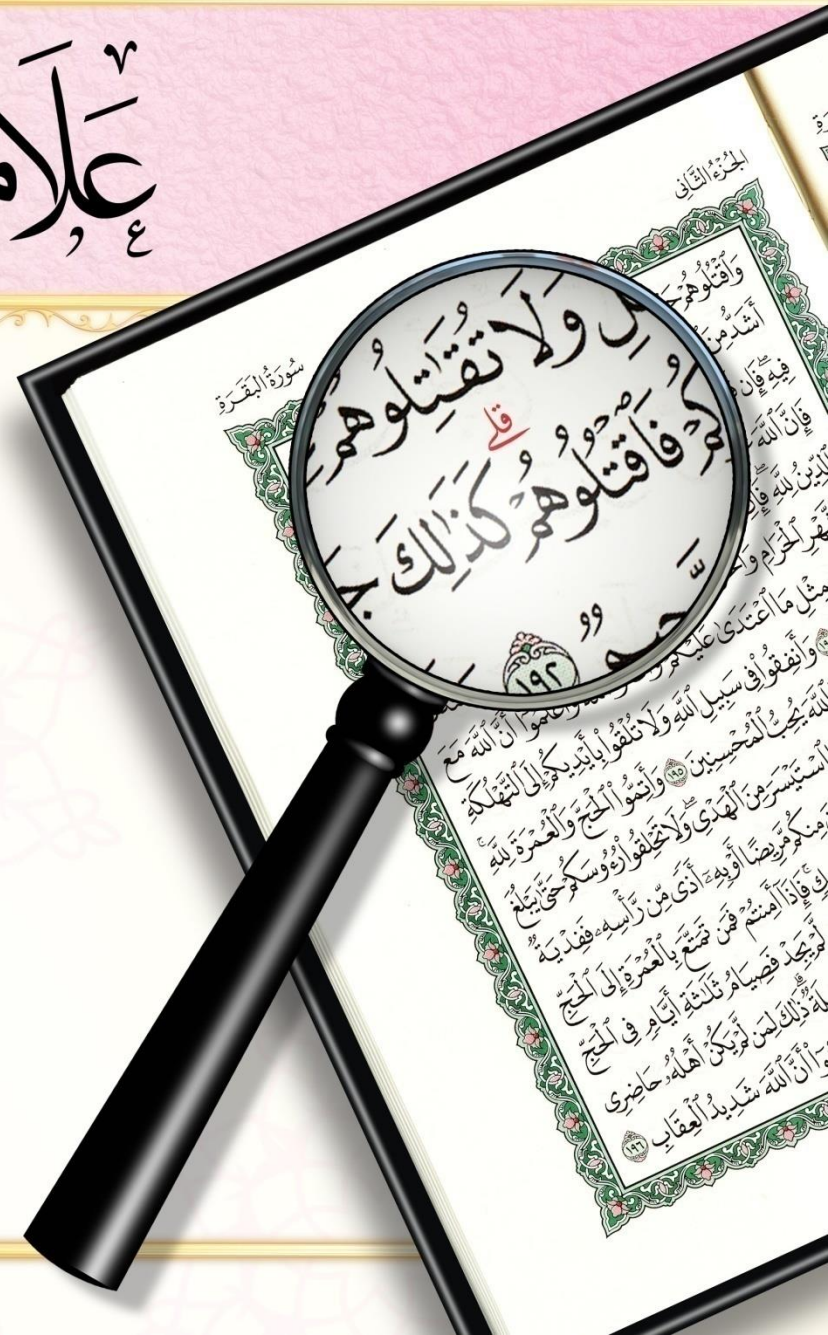 عَلَام
الجُزْءُ الثَّانِى
سُورَةُ البَقَرَةِ
لِ وَلَا تُقَٰتِلُوهُمْ
كُمْ فَٱقْتُلُوهُمْ ۗ كَذَٰلِكَ جَ
حِيمٌ ١٩٢
وَٱقْتُلُوهُمْ
أَشَدُّ مِنَ
فِيهِ ۖ فَإِن
فَإِنَّ ٱللَّهَ
ٱلدِّينُ لِلَّهِ ۖ
ٱلْحَرَامِ
مِثْلِ مَا ٱعْتَدَىٰ عَلَيْكُمْ وَٱعْلَمُوٓا۟ أَنَّ ٱللَّهَ مَعَ
وَأَنفِقُوا۟ فِى سَبِيلِ ٱللَّهِ وَلَا تُلْقُوا۟ بِأَيْدِيكُمْ إِلَى ٱلتَّهْلُكَةِ
ٱللَّهَ يُحِبُّ ٱلْمُحْسِنِينَ ١٩٥ وَأَتِمُّوا۟ ٱلْحَجَّ وَٱلْعُمْرَةَ لِلَّهِ ۚ
ٱسْتَيْسَرَ مِنَ ٱلْهَدْىِ ۖ وَلَا تَحْلِقُوا۟ رُءُوسَكُمْ حَتَّىٰ يَبْلُغَ
مِنكُم مَّرِيضًا أَوْ بِهِۦٓ أَذًى مِّن رَّأْسِهِۦ فَفِدْيَةٌ
كٍ ۚ فَإِذَآ أَمِنتُمْ فَمَن تَمَتَّعَ بِٱلْعُمْرَةِ إِلَى ٱلْحَجِّ
لَّمْ يَجِدْ فَصِيَامُ ثَلَٰثَةِ أَيَّامٍ فِى ٱلْحَجِّ
لَةٌ ۗ ذَٰلِكَ لِمَن لَّمْ يَكُنْ أَهْلُهُۥ حَاضِرِى
وٓا۟ أَنَّ ٱللَّهَ شَدِيدُ ٱلْعِقَابِ ١٩٦